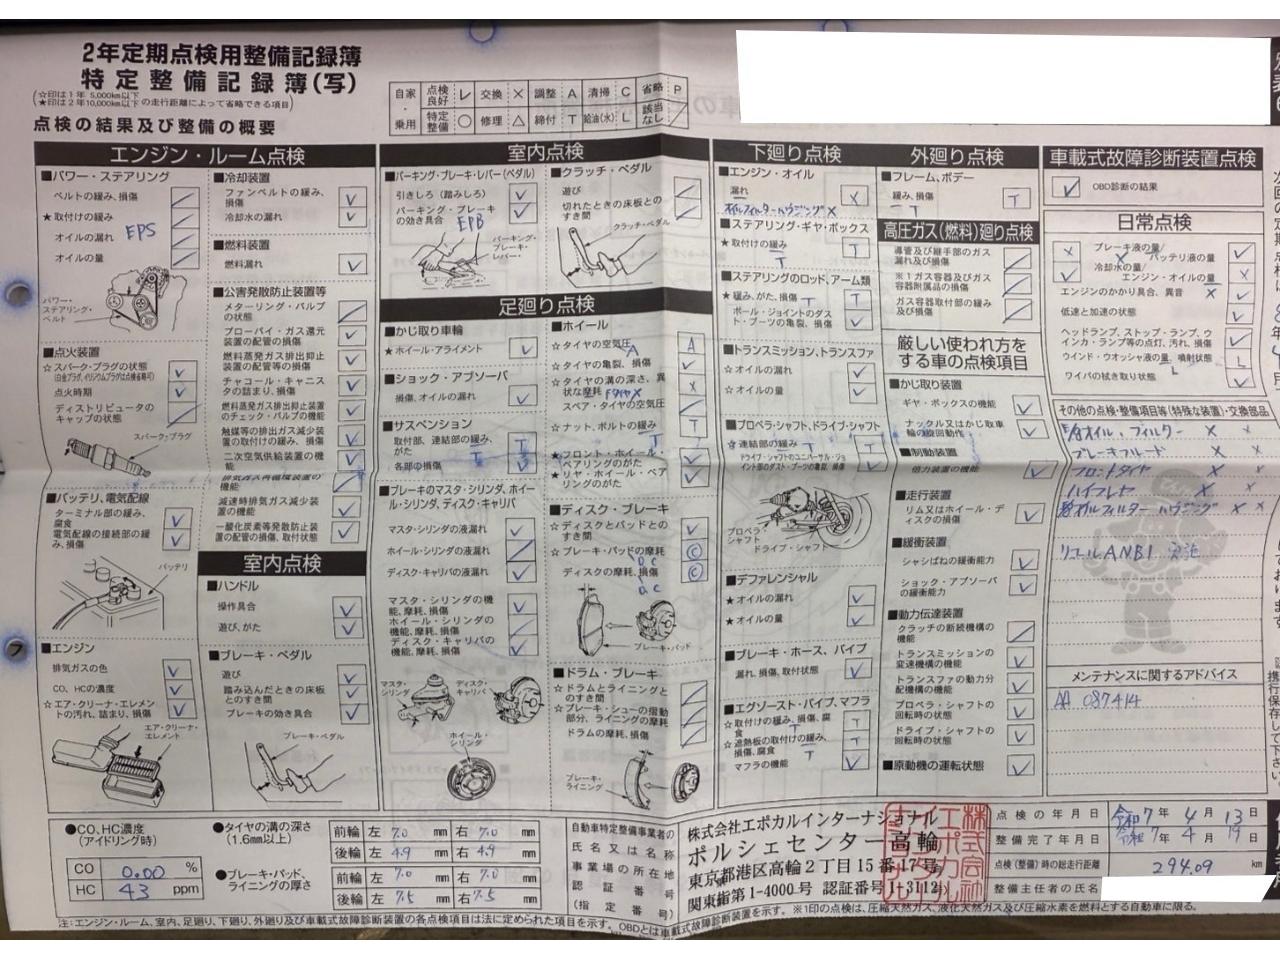 2年定期点検用整備記録簿
特定整備記録簿(写)
(☆印は1年 5,000km以下
★印は2年10,000km以下 の走行距離によって省略できる項目)
点検の結果及び整備の概要
自家・乗用
点検良好 レ 交換 × 調整 A 清掃 C 省略 P
特定整備 ○ 修理 △ 締付 T 給油(水) L 該当なし /
エンジン・ルーム点検
■パワー・ステアリング
ベルトの緩み、損傷
★取付けの緩み
オイルの漏れ
EPS
オイルの量
パワー・ステアリング・ベルト
■点火装置
☆スパーク・プラグの状態
(白金プラグ、イリジウムプラグは点検省略可)
点火時期
ディストリビュータのキャップの状態
スパーク・プラグ
■バッテリ、電気配線
ターミナル部の緩み、腐食
電気配線の接続部の緩み、損傷
バッテリ
■エンジン
排気ガスの色
CO、HCの濃度
☆エア・クリーナ・エレメントの汚れ、詰まり、損傷
エア・クリーナ・エレメント
■冷却装置
ファンベルトの緩み、損傷
冷却水の漏れ
■燃料装置
燃料漏れ
■公害発散防止装置等
メターリング・バルブの状態
ブローバイ・ガス還元装置の配管の損傷
燃料蒸発ガス排出抑止装置の配管等の損傷
チャコール・キャニスタの詰まり、損傷
燃料蒸発ガス排出抑止装置のチェック・バルブの機能
触媒等の排出ガス減少装置の取付けの緩み、損傷
二次空気供給装置の機能
排気ガス再循環装置の機能
減速時排気ガス減少装置の機能
一酸化炭素等発散防止装置の配管の損傷、取付状態
室内点検
■ハンドル
操作具合
遊び、がた
■ブレーキ・ペダル
遊び
踏み込んだときの床板とのすき間
ブレーキの効き具合
ブレーキ・ペダル
室内点検
■パーキング・ブレーキ・レバー(ペダル)
引きしろ(踏みしろ)
パーキング・ブレーキの効き具合 EPB
パーキング・ブレーキ・レバー
■クラッチ・ペダル
遊び
切れたときの床板とのすき間
クラッチ・ペダル
足廻り点検
■かじ取り車輪
★ホイール・アライメント
■ショック・アブソーバ
損傷、オイルの漏れ
■サスペンション
取付部、連結部の緩み、がた
各部の損傷
■ブレーキのマスタ・シリンダ、ホイール・シリンダ、ディスク・キャリパ
マスタ・シリンダの液漏れ
ホイール・シリンダの液漏れ
ディスク・キャリパの液漏れ
マスタ・シリンダの機能、摩耗、損傷
ホイール・シリンダの機能、摩耗、損傷
ディスク・キャリパの機能、摩耗、損傷
マスタ・シリンダ
ディスク・キャリパ
ホイール・シリンダ
■ホイール
☆タイヤの空気圧 A
☆タイヤの亀裂、損傷
☆タイヤの溝の深さ、異状な摩耗 Fタイヤ×
スペア・タイヤの空気圧
☆ナット、ボルトの緩み T
★フロント・ホイール・ベアリングのがた
★リヤ・ホイール・ベアリングのがた
■ディスク・ブレーキ
☆ディスクとパッドとのすき間
☆ブレーキ・パッドの摩耗
ディスクの摩耗、損傷
ブレーキ・パッド
■ドラム・ブレーキ
☆ドラムとライニングとのすき間
☆ブレーキ・シューの摺動部分、ライニングの摩耗
ドラムの摩耗、損傷
ブレーキ・ライニング
下廻り点検
■エンジン・オイル
漏れ
オイルフィルターハウジング×
■ステアリング・ギヤ・ボックス
★取付けの緩み T
■ステアリングのロッド、アーム類
★緩み、がた、損傷 T
ボール・ジョイントのダスト・ブーツの亀裂、損傷
■トランスミッション、トランスファ
☆オイルの漏れ
☆オイルの量
■プロペラ・シャフト、ドライブ・シャフト
☆連結部の緩み T
ドライブ・シャフトのユニバーサル・ジョイント部のダスト・ブーツの亀裂、損傷
プロペラ・シャフト
ドライブ・シャフト
■デファレンシャル
★オイルの漏れ
★オイルの量
■ブレーキ・ホース、パイプ
漏れ、損傷、取付状態
■エグゾースト・パイプ、マフラ
☆取付けの緩み、損傷、腐食 T
☆遮熱板の取付けの緩み、損傷、腐食 T
マフラの機能
外廻り点検
■フレーム、ボデー
緩み、損傷 T
高圧ガス(燃料)廻り点検
導管及び継手部のガス漏れ及び損傷
※1ガス容器及びガス容器附属品の損傷
ガス容器取付部の緩み及び損傷
厳しい使われ方をする車の点検項目
■かじ取り装置
ギヤ・ボックスの機能
ナックル又はかじ取車輪の旋回動作
■制動装置
倍力装置の機能
■走行装置
リム又はホイール・ディスクの損傷
■緩衝装置
シャシばねの緩衝能力
ショック・アブソーバの緩衝能力
■動力伝達装置
クラッチの断続機構の機能
トランスミッションの変速機構の機能
トランスファの動力分配機構の機能
プロペラ・シャフトの回転時の状態
ドライブ・シャフトの回転時の状態
■原動機の運転状態
車載式故障診断装置点検
OBD診断の結果
日常点検
ブレーキ液の量/バッテリ液の量
冷却水の量/エンジン・オイルの量
エンジンのかかり具合、異音
低速と加速の状態
ヘッドランプ、ストップ・ランプ、ウインカ・ランプ等の点灯、汚れ、損傷
ウインド・ウオッシャ液の量、噴射状態 L
ワイパの拭き取り状態
その他の点検・整備項目等(特殊な装置)・交換部品
E/gオイル、フィルター × ×
ブレーキフルード × ×
フロントタイヤ × ×
ワイプレヤ × ×
オイルフィルターハウジング × ×
リコールANB1 実施
メンテナンスに関するアドバイス
AA 087414
●CO、HC濃度
(アイドリング時)
CO 0.00 %
HC 43 ppm
●タイヤの溝の深さ
(1.6mm以上)
前輪 左 7.0 mm 右 7.0 mm
後輪 左 4.9 mm 右 4.9 mm
●ブレーキ・パッド、ライニングの厚さ
前輪 左 7.0 mm 右 7.0 mm
後輪 左 7.5 mm 右 7.5 mm
自動車特定整備事業者の
氏名又は名称
事業場の所在地
認証番号
(指定番号)
株式会社エポカルインターナショナル
ポルシェセンター高輪
東京都港区高輪2丁目15番17号
関東指第1-4000号 認証番号1-3112
点検の年月日 令和7年 4月 13日
整備完了年月日 令和7年 4月 19日
点検(整備)時の総走行距離 29409 km
整備主任者の氏名
注:エンジン・ルーム、室内、足廻り、下廻り、外廻り及び車載式故障診断装置の各点検項目は法に定められた項目を示す。OBDとは車載式故障診断装置を示す。※1印の点検は、圧縮天然ガス、液化天然ガス及び圧縮水素を燃料とする自動車に限る。